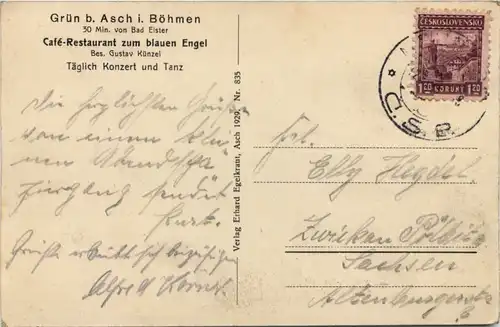 Grün b. Asch i. Böhmen
30 Min. von Bad Elster
Café-Restaurant zum blauen Engel
Bes. Gustav Künzel
Täglich Konzert und Tanz
Die herzlichsten Grüße
von einem klei
nen Abendspa
ziergang sendet
Kurt.
Grüße erlaubt sich beizufügen
Alfred
Verlag Erhard Egelkraut, Asch 1929 Nr. 835
ČESKOSLOVENSKO
1.20 KORUNY 1.20
Frl.
Elly
Zwickau Pölbitz
Sachsen
Altenburgerstr.